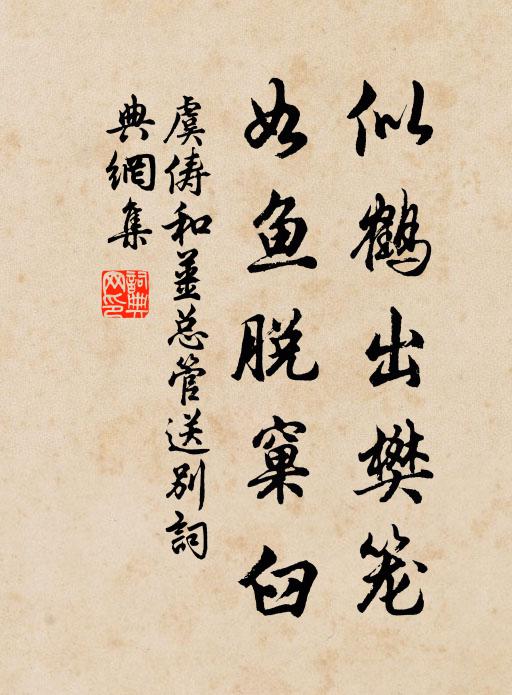 似鹤出樊笼
如鱼脱窠臼
虞俦和姜总管送别词
典網集
詞典网印